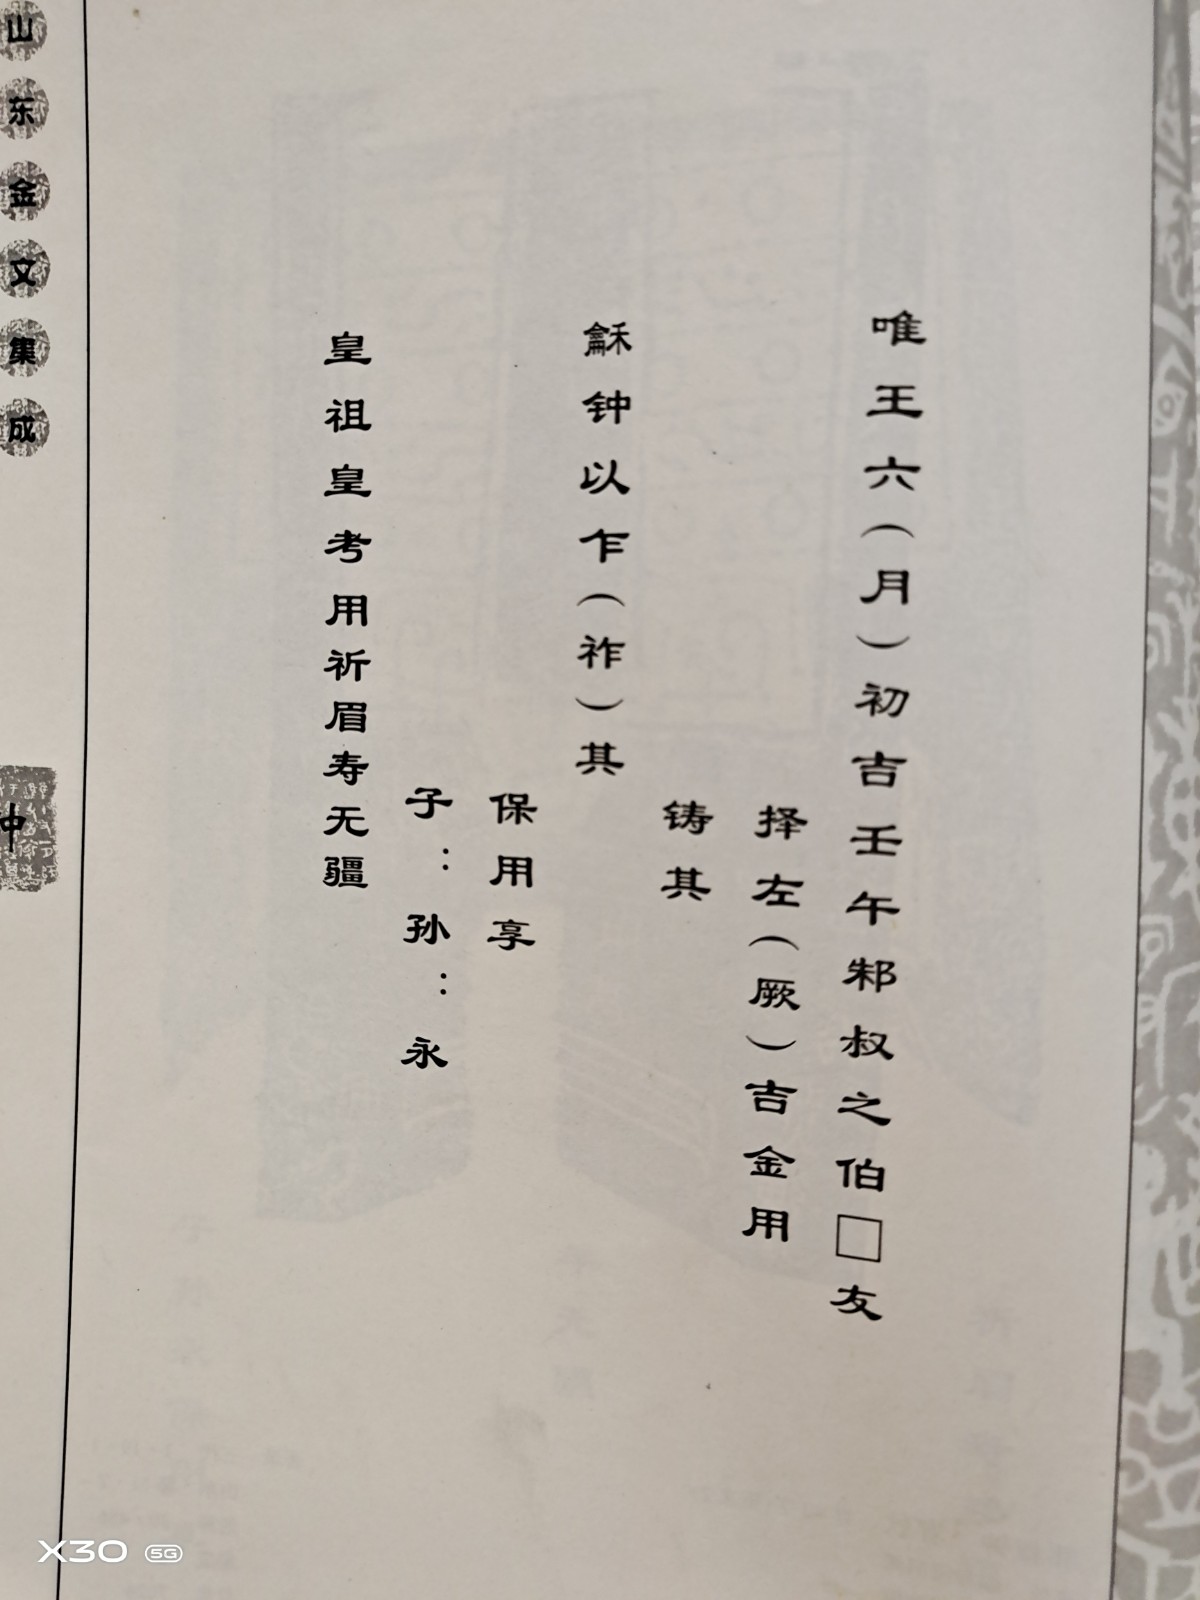 唯王六（月）初吉壬午邾叔之伯□友
择左（厥）吉金用
铸其
龢钟以乍（祚）其
保用享
子：孙：永
皇祖皇考用祈眉寿无疆
山东金文集成
钟
X30 5G